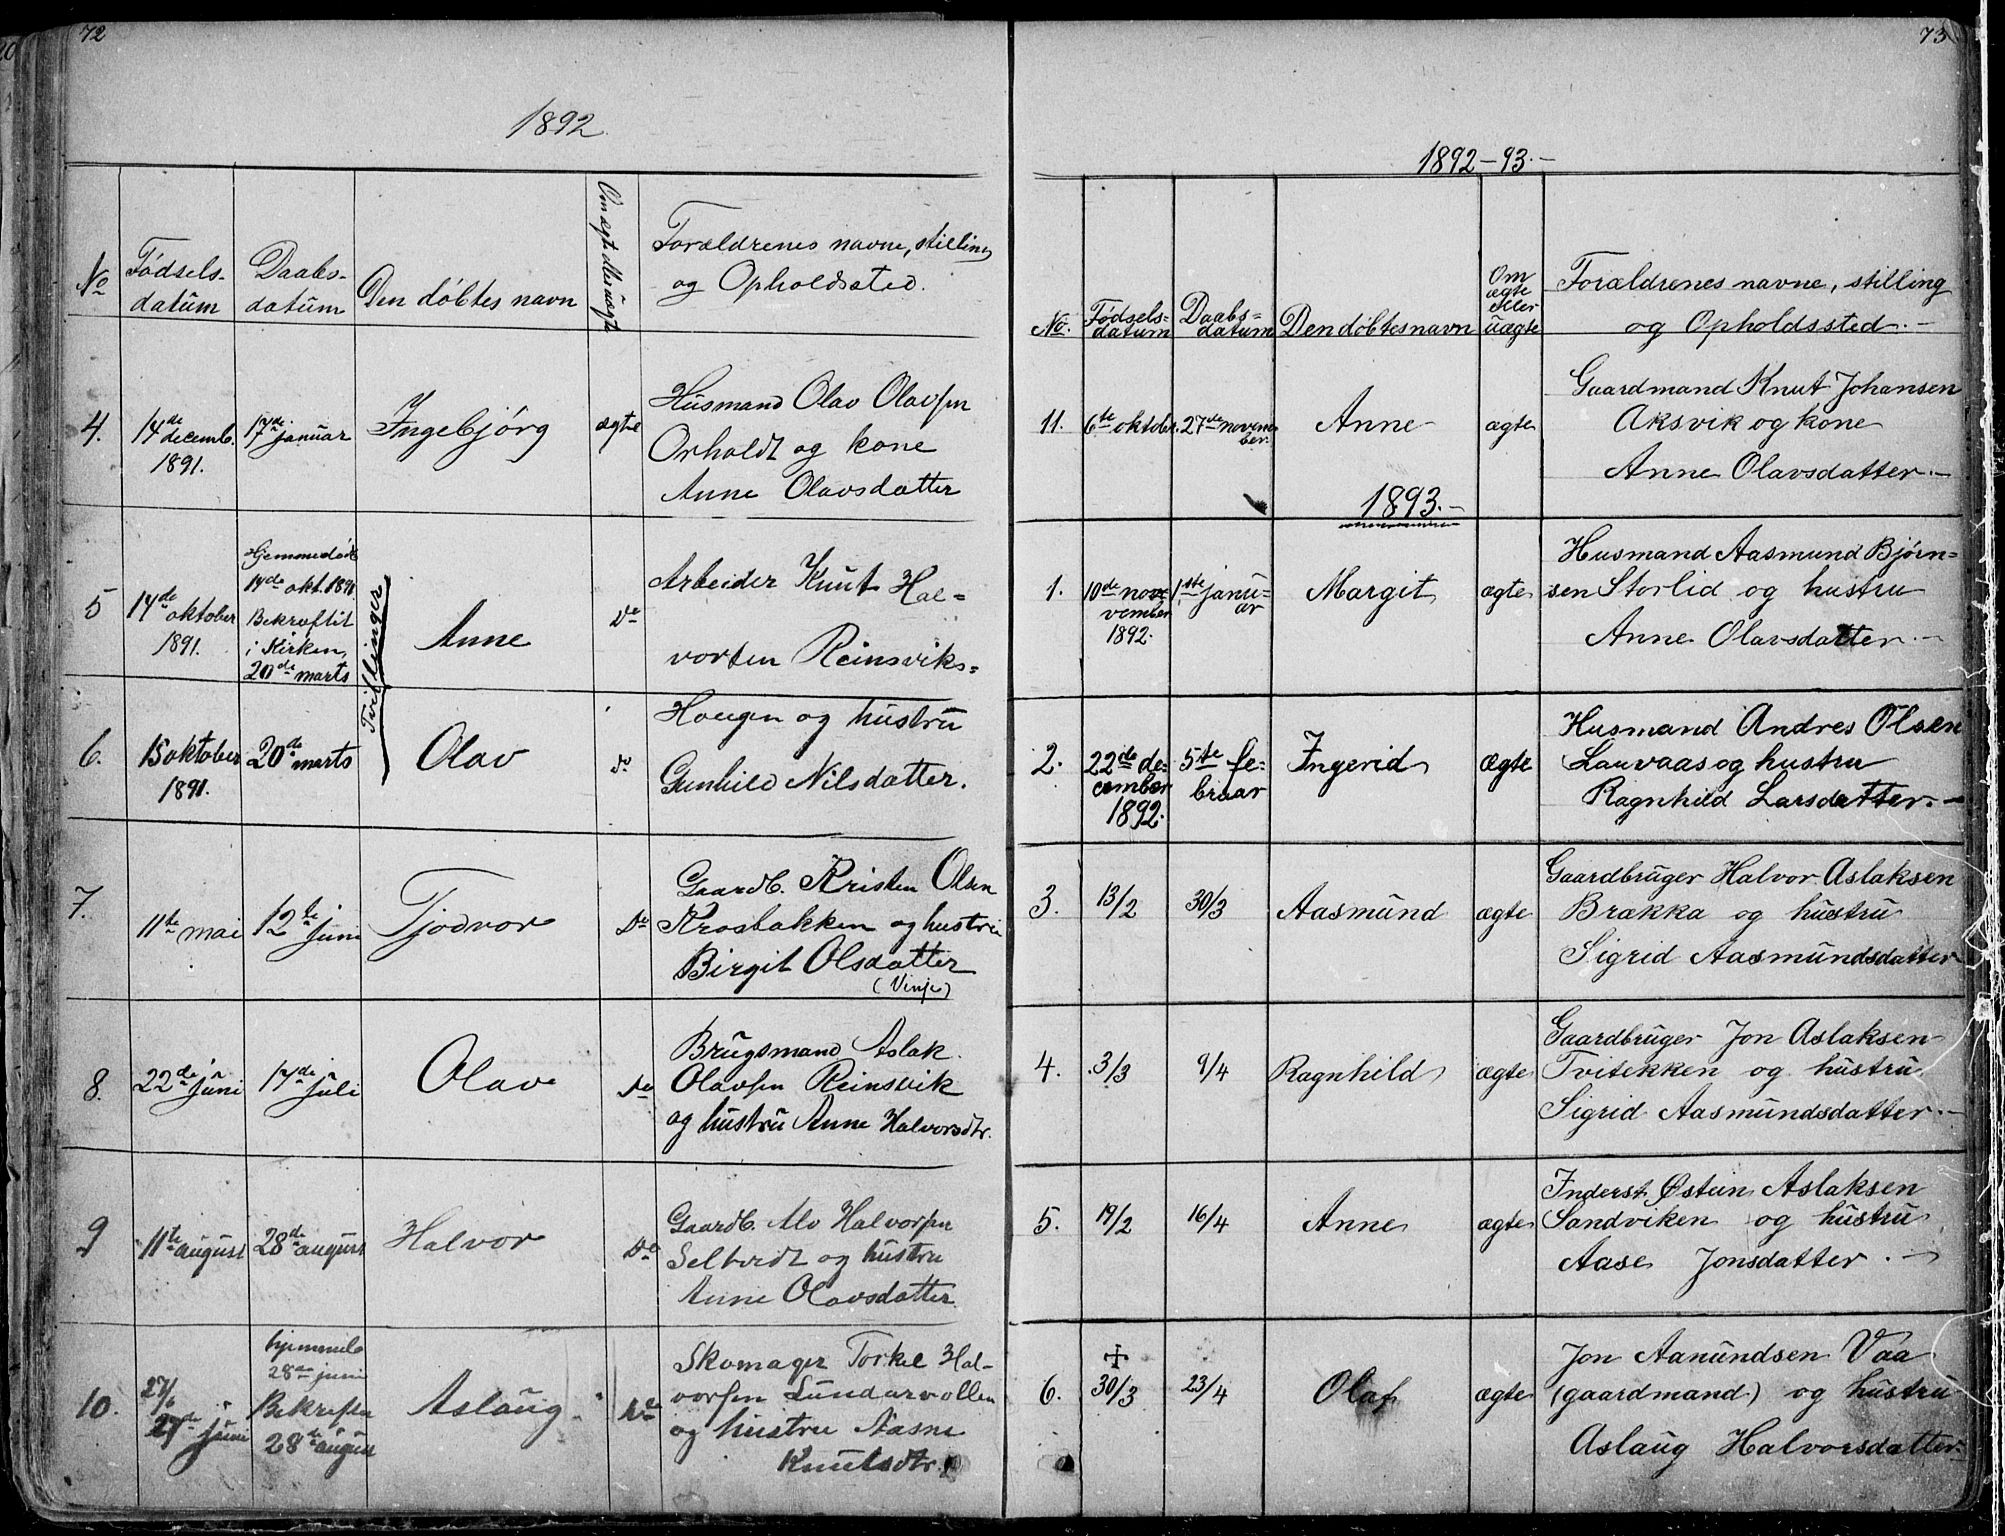 72
1892
No
Fødsels-
datum
Daabs-
datum
Den døbtes navn
Om ægte eller uægte
Forældrenes navne, stilling
og Opholdssted.
4.
14de decemb.
1891.
17de januar
Ingebjørg
ægte
Husmand Olav Olavsen
Orholdt og kone
Anne Olavsdatter
5
14de oktober
1891.
Hjemmedøbt
14de okt. 1891
Bekræftet
i Kirken,
20de marts
Tvillinger
Anne
Do
Arbeider Knut Hal-
vorsen Reinsviks-
6.
15 oktober
1891.
20de marts
Olav
do
Haugen og hustru
Gunhild Nilsdatter.
7.
11te mai
12te juni
Tjodvor
Do
Gaardb. Kristen Olsen
Krosbakken og hustru
Birgit Olsdatter
(Vinje)
8.
22de juni
17de juli
Olav
Do
Brugsmand Aslak
Olavsen Reinsvik
og hustru Anne Halvorsdtr.
9
11te august
28de august
Halvor
Do
Gaardb. Alv Halvorsen
Seltveit og hustru
Anne Olavsdatter
10.
27/6
27de juni
hjemmed
28de juni
Bekræftet
28de august
Aslaug
Do
Skomager Torkel Hal-
vorsen Lundarvollen
og hustru Aasne
Knutsdtr.
73
1892-93.-
No.
Fødsels-
datum
Daabs-
datum
Den døbtes navn
Om
ægte
eller
uægte
Forældrenes navne, stilling
og Opholdssted.-
11.
6te oktober.
27de novem-
ber.
Anne
ægte
Gaardmand Knut Johansen
Aksvik og kone
Anne Olavsdatter.-
1893.-
1.
10de no-
vember
1892.
1ste janu-
ar
Margit
ægte
Husmand Aasmund Bjørn-
sen Storlid og hustru
Anne Olavsdatter.-
2.
22de de-
cember
1892.
5te fe-
bruar
Ingerid
Ægte
Husmand Andres Olsen
Lauvaas og hustru
Ragnhild Larsdatter.-
3.
13/2
30/3
Aasmund
ægte
Gaardbruger Halvor Aslaksen
Brækka og hustru
Sigrid Aasmundsdatter
4.
3/3
9/4
Ragnhild
ægte
Gaardbruger Jon Aslaksen
Tvitekken og hustru
Sigrid Aasmundsdatter.-
5.
19/2
16/4
Anne
ægte
Inderst Østein Aslaksen
Sandviken og hustru
Aase Jonsdatter.-
6.
30/3
23/4
Olaf
ægte
Jon Aanundsen Vaa
(gaardmand) og hustru
Aslaug Halvorsdatter-